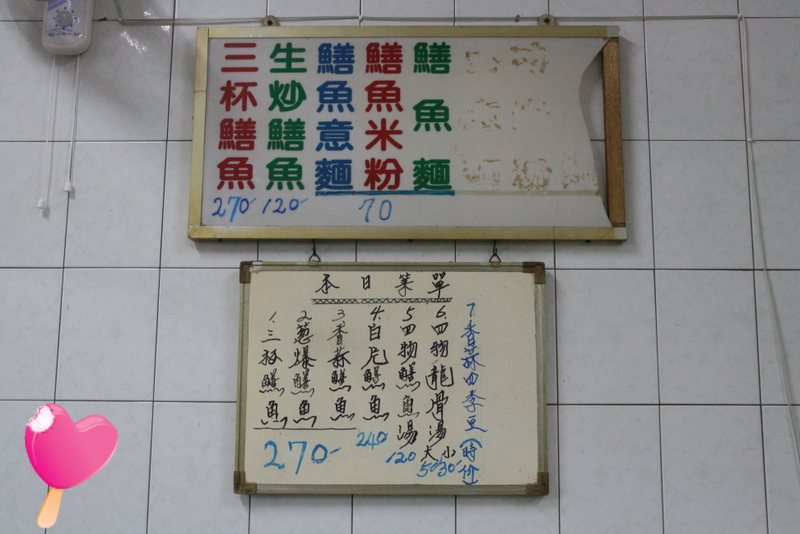 三杯鱔魚
270-
生炒鱔魚
120-
鱔魚意麵
鱔魚米粉
鱔魚麵
70
本日菜單
1.三杯鱔魚
2.葱爆鱔魚
3.香蒜鱔魚
270-
4.白尼鱔魚
240-
5.四物鱔魚湯
120
6.四物龍骨湯
大 小
50 30-
7香蒜四季豆(時价)